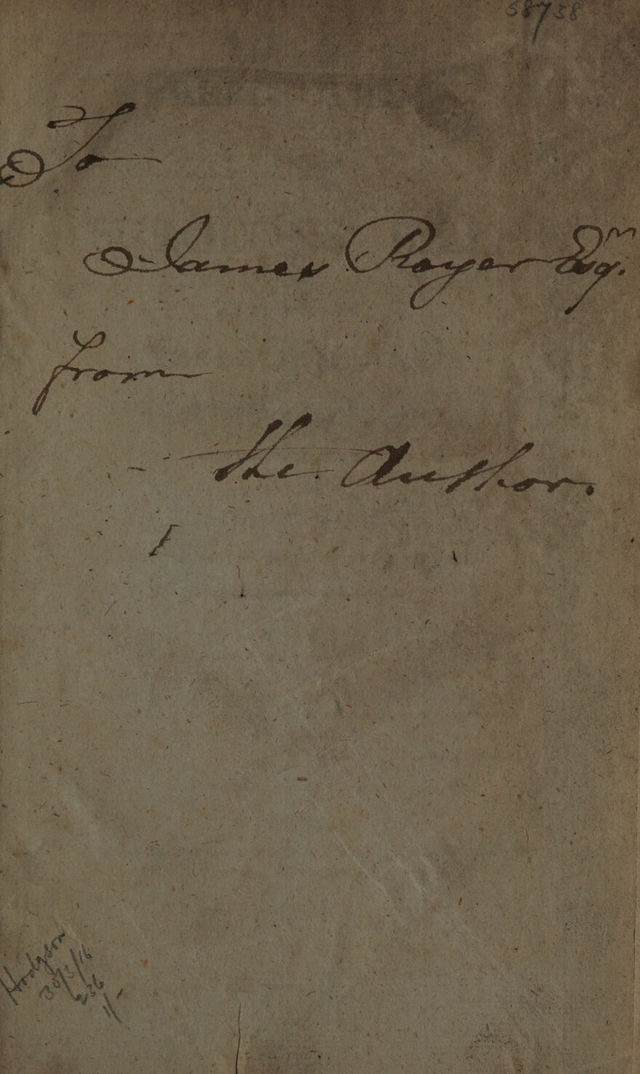 58738
To
James Royer Esqr.
from
the Author.
Hodgson
30/3/16
236
1/-